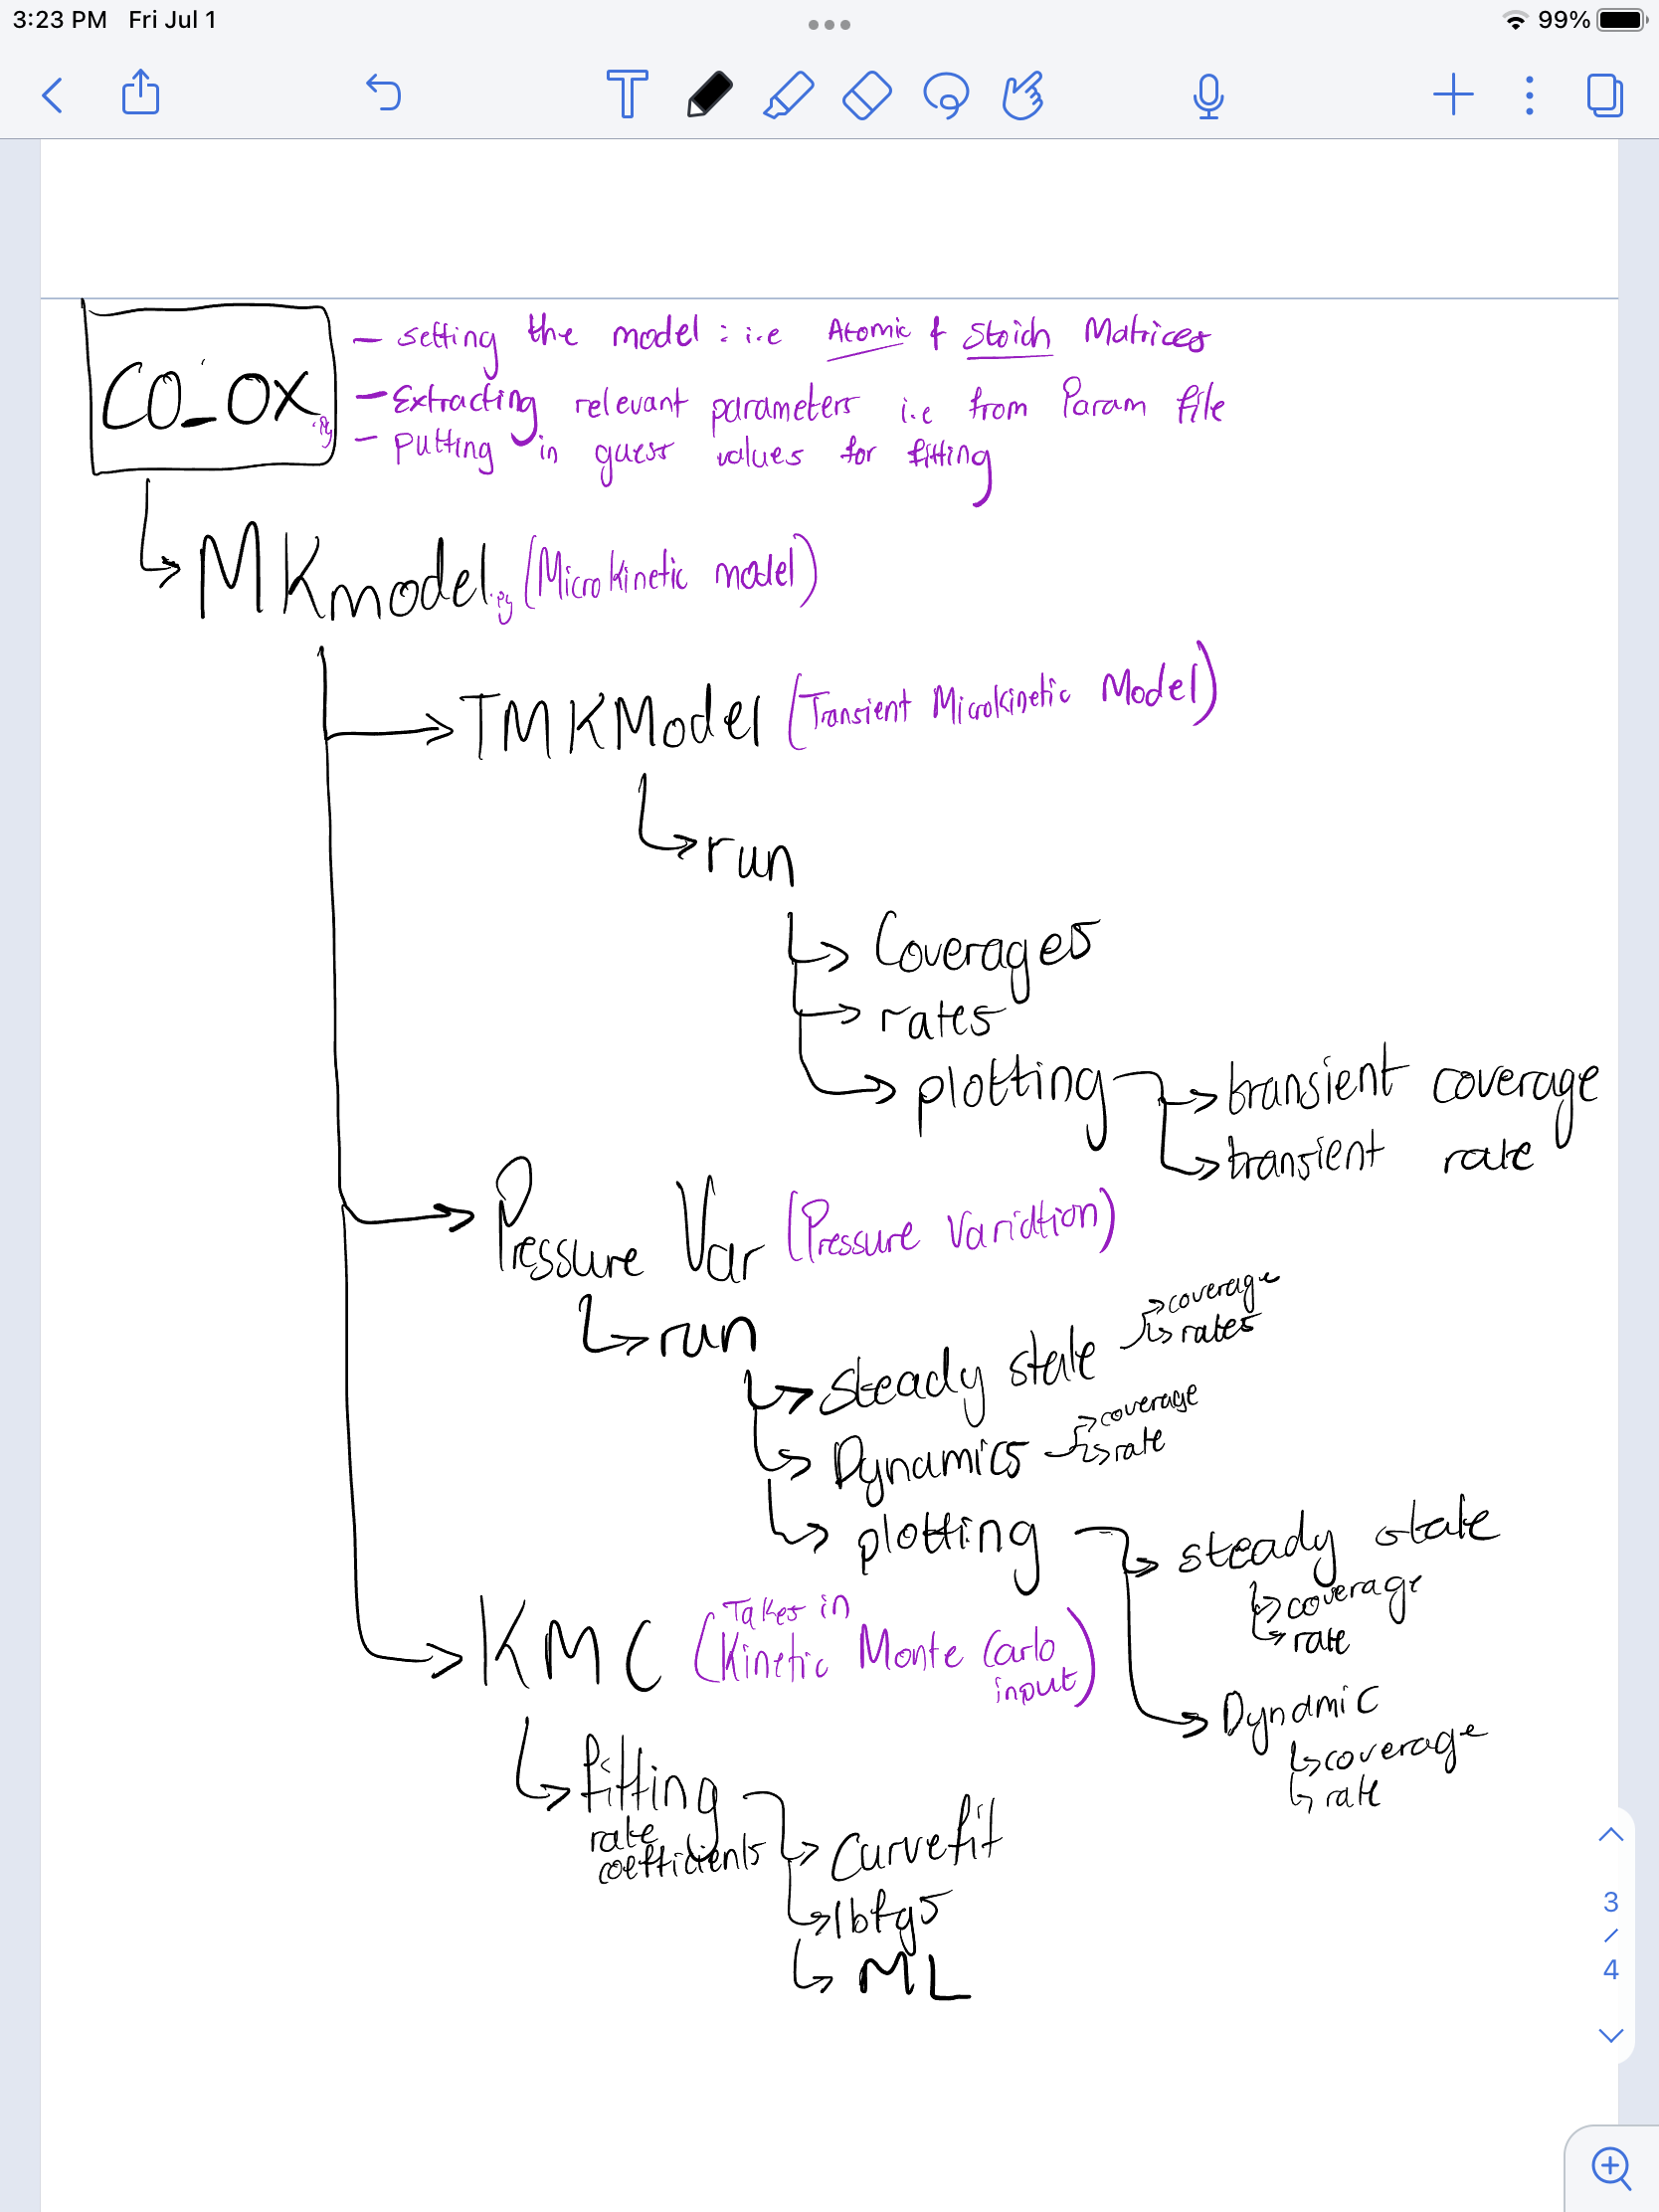 3:23 PM Fri Jul 1
99%
CO_OX.py
- setting the model : i.e Atomic & Stoich Matrices
- Extracting relevant parameters i.e from Param file
- Putting in guess values for fitting
MKmodel.py (Microkinetic model)
TMKModel (Transient Microkinetic Model)
run
Coverages
rates
plotting
transient coverage
transient rate
Pressure Var (Pressure Variation)
run
steady state
coverage
rates
Dynamics
coverage
rate
plotting
steady state
coverage
rate
Dynamic
coverage
rate
KMC (Takes in Kinetic Monte Carlo input)
fitting
rate
coefficients
Curvefit
lbfgs
ML
3
/
4